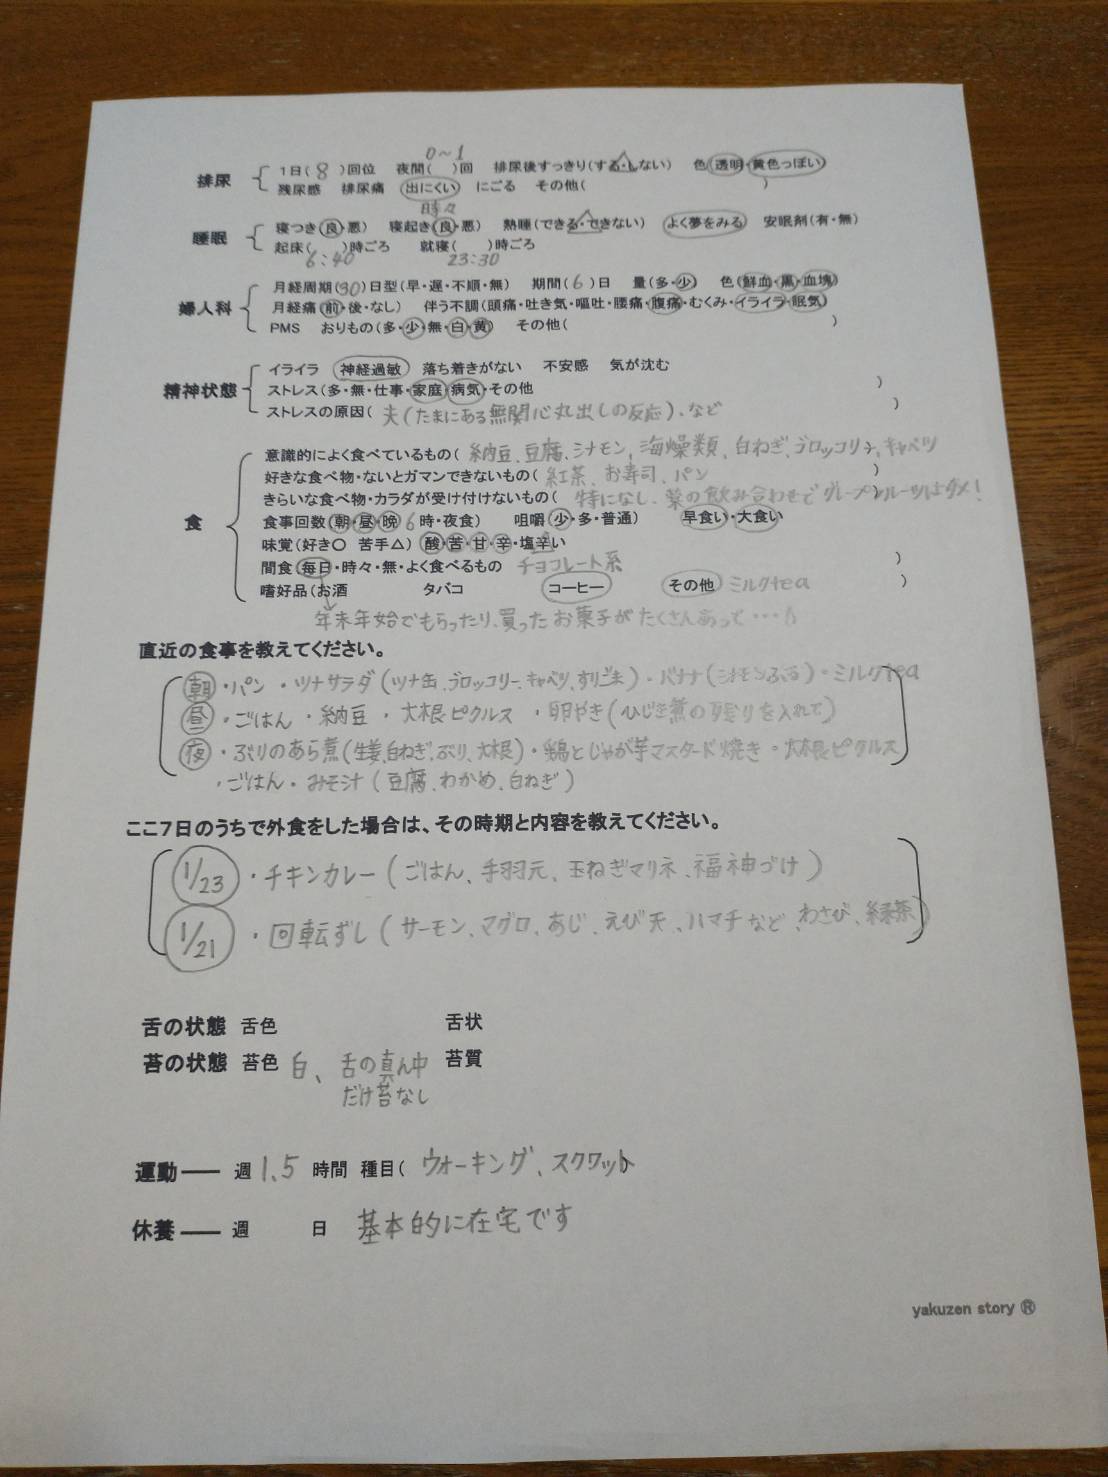 0～1
排尿 1日(8)回位 夜間( )回 排尿後すっきり(する・しない) 色(透明・黄色っぽい)
残尿感 排尿痛 出にくい にごる その他( )
時々
睡眠 寝つき(良・悪) 寝起き(良・悪) 熟睡(できる・できない) よく夢をみる 安眠剤(有・無)
起床( )時ごろ 就寝( )時ごろ
6:40 23:30
婦人科 月経周期(30)日型(早・遅・不順・無) 期間(6)日 量(多・少) 色(鮮血・黒・血塊)
月経痛(前・後・なし) 伴う不調(頭痛・吐き気・嘔吐・腰痛・腹痛・むくみ・イライラ・眠気)
PMS おりもの(多・少・無・白・黄) その他( )
精神状態 イライラ 神経過敏 落ち着きがない 不安感 気が沈む
ストレス(多・無・仕事・家庭・病気・その他 )
ストレスの原因(夫(たまにある無関心丸出しの反応)、など )
食 意識的によく食べているもの(納豆、豆腐、シナモン、海燥類、白ねぎ、ブロッコリー、キャベツ
好きな食べ物・ないとガマンできないもの(紅茶、お寿司、パン )
きらいな食べ物・カラダが受け付けないもの(特になし、薬の飲み合わせでグレープフルーツはダメ!
食事回数(朝・昼・晩 6時・夜食) 咀嚼(少・多・普通) 早食い・大食い
味覚(好き〇 苦手△) 酸・苦・甘・辛・塩辛い
間食(毎日・時々・無・よく食べるもの チョコレート系 )
嗜好品(お酒 タバコ コーヒー その他 ミルクtea )
年末年始でもらったり、買ったお菓子がたくさんあって…
直近の食事を教えてください。
朝・パン・ツナサラダ(ツナ缶、ブロッコリー、キャベツ、すりごま)・バナナ(シナモンふる)・ミルクtea
昼・ごはん・納豆・大根ピクルス・卵やき(ひじき煮の残りを入れて)
夜・ぶりのあら煮(生姜、白ねぎ、ぶり、大根)・鶏とじゃが芋マスタード焼き・大根ピクルス
・ごはん・みそ汁(豆腐、わかめ、白ねぎ)
ここ7日のうちで外食をした場合は、その時期と内容を教えてください。
1/23・チキンカレー(ごはん、手羽元、玉ねぎマリネ、福神づけ)
1/21・回転ずし(サーモン、マグロ、あじ、えび天、ハマチなど、わさび、緑茶)
舌の状態 舌色 舌状
苔の状態 苔色 白、舌の真ん中 苔質
だけ苔なし
運動―― 週1.5時間 種目( ウォーキング、スクワット
休養―― 週 日 基本的に在宅です
yakuzen story ®